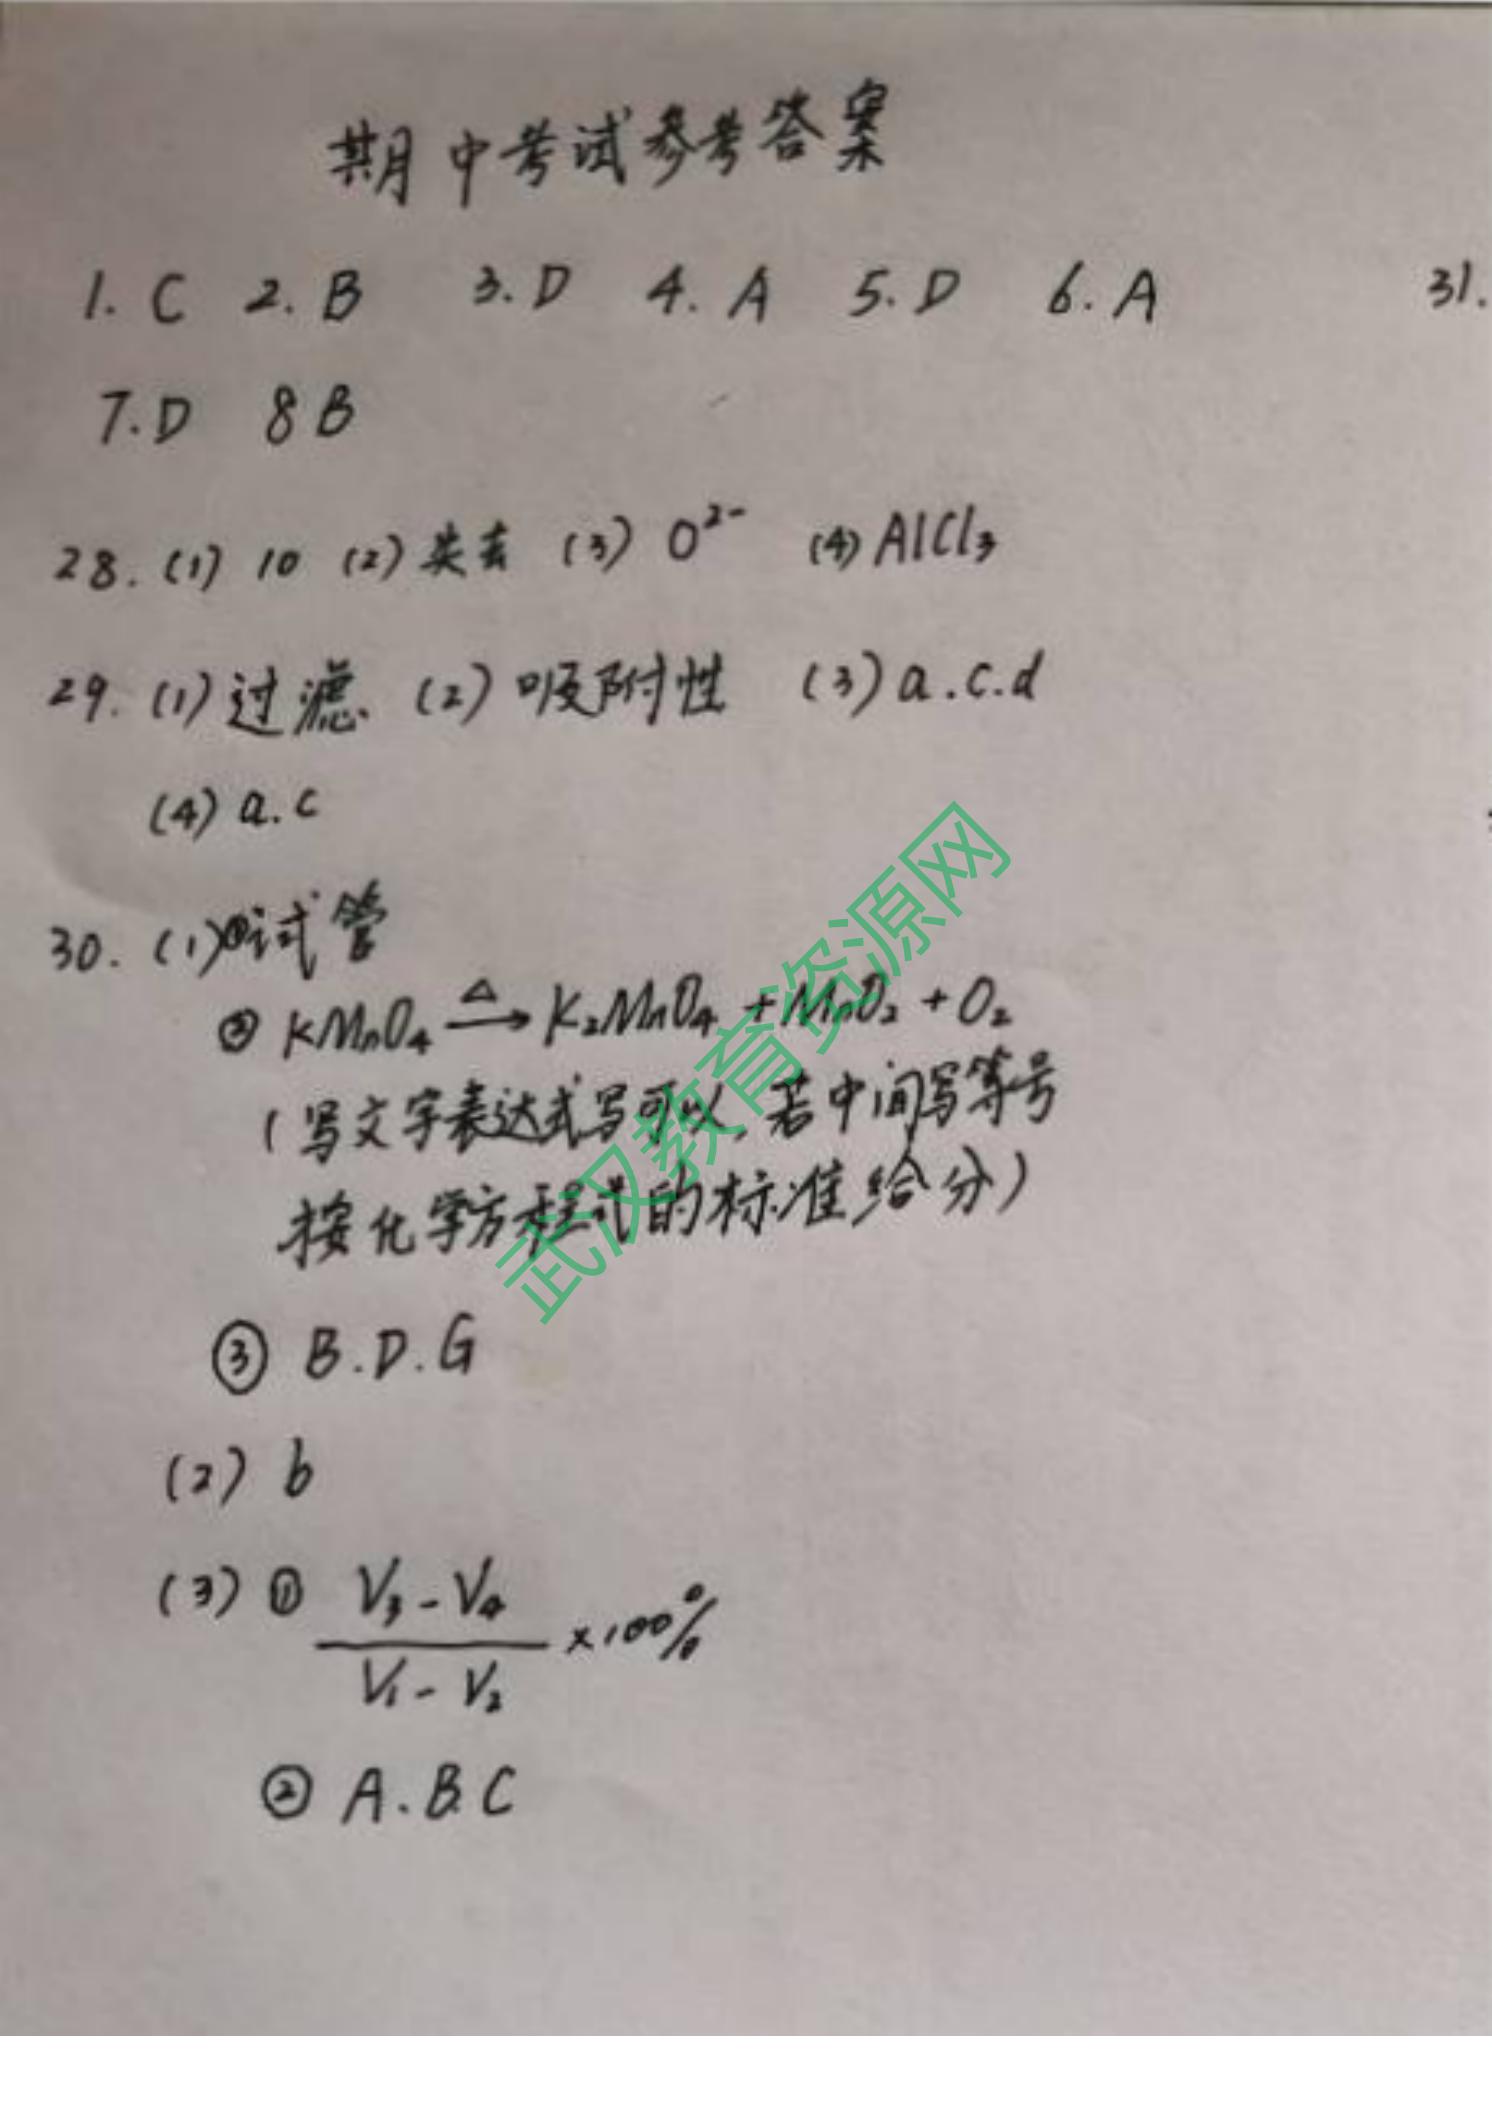 期中考试参考答案
1. C 2. B 3. D 4. A 5. D 6. A
31.
7. D 8 B
28. (1) 10 (2) 失去 (3) O²⁻ (4) AlCl₃
29. (1) 过滤 (2) 吸附性 (3) a.c.d
(4) a.c
30. (1)①试管
② KMnO₄ —△→ K₂MnO₄ + MnO₂ + O₂
(写文字表达式写可以,若中间写等号
按化学方程式的标准给分)
③ B.D.G
(2) b
(3) ① (V₃-V₄)/(V₁-V₂) ×100%
② A.B.C
武汉教育资源网